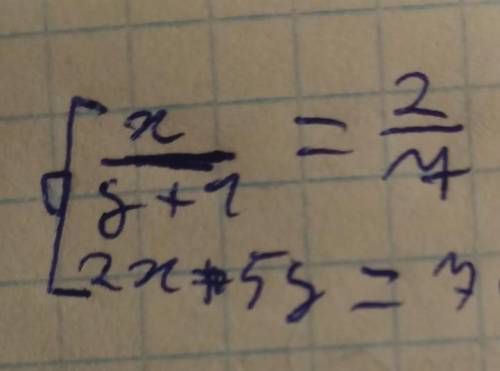 x/(y+1) = 2/7
2x + 5y = 7